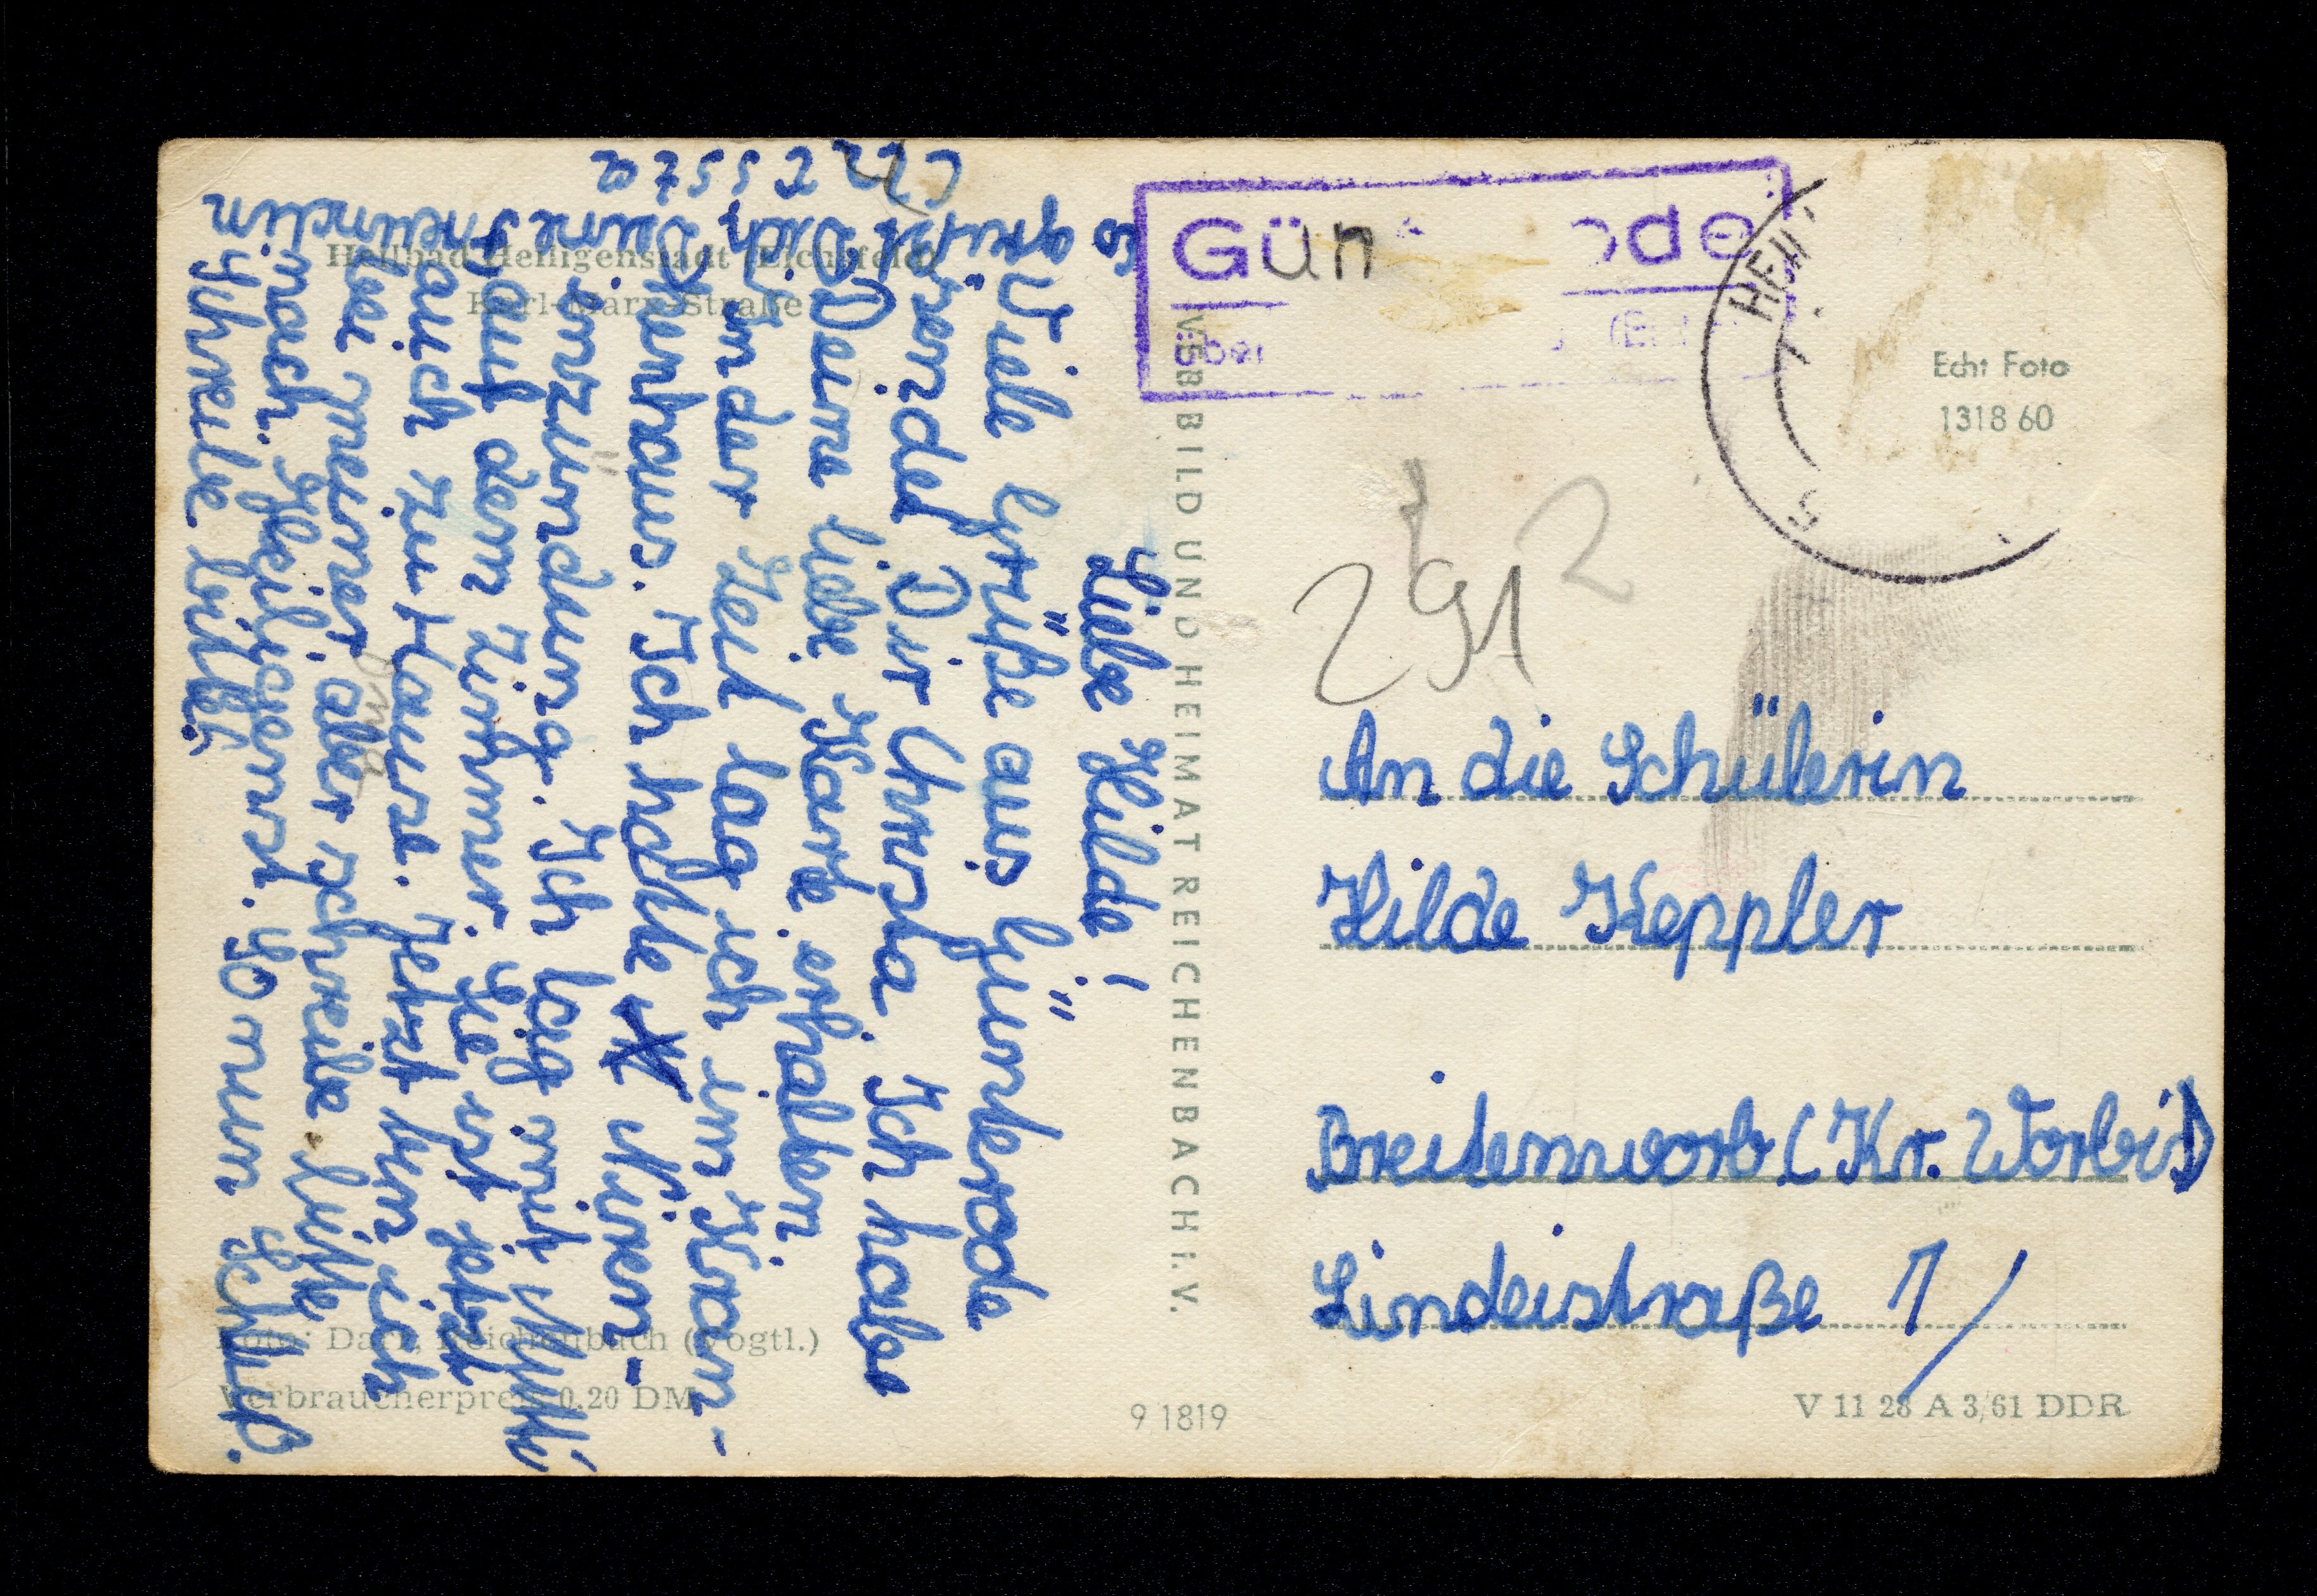 Liebe Hilde!
Viele Grüße aus Günterode
sendet Dir Christa. Ich habe
Deine liebe Karte erhalten.
In der Zeit lag ich im Kran-
kenhaus. Ich hatte Nieren-
entzündung. Ich lag mit Mutti
auf dem Zimmer. Sie ist jetzt
auch zu Hause. Jetzt bin ich
bei meiner aber schreibe bitte
nach Heiligenst. Komm Schst.
Schreibe bitte!
Es grüßt
Dich
Deine Freundin
Christa
Heilbad Heiligenstadt (Eichsfeld)
Karl-Marx-Straße
Foto: Darr, Reichenbach (Vogtl.)
Verbraucherpreis 0.20 DM
VEB BILD UND HEIMAT REICHENBACH i. V.
9 1819
Gün ode
über
HEILI
Echt Foto
1318 60
291
2
An die Schülerin
Hilde Keppler
Breitenworb. (Kr. Worbis)
Lindeistraße 1
V 11 28 A 3/61 DDR